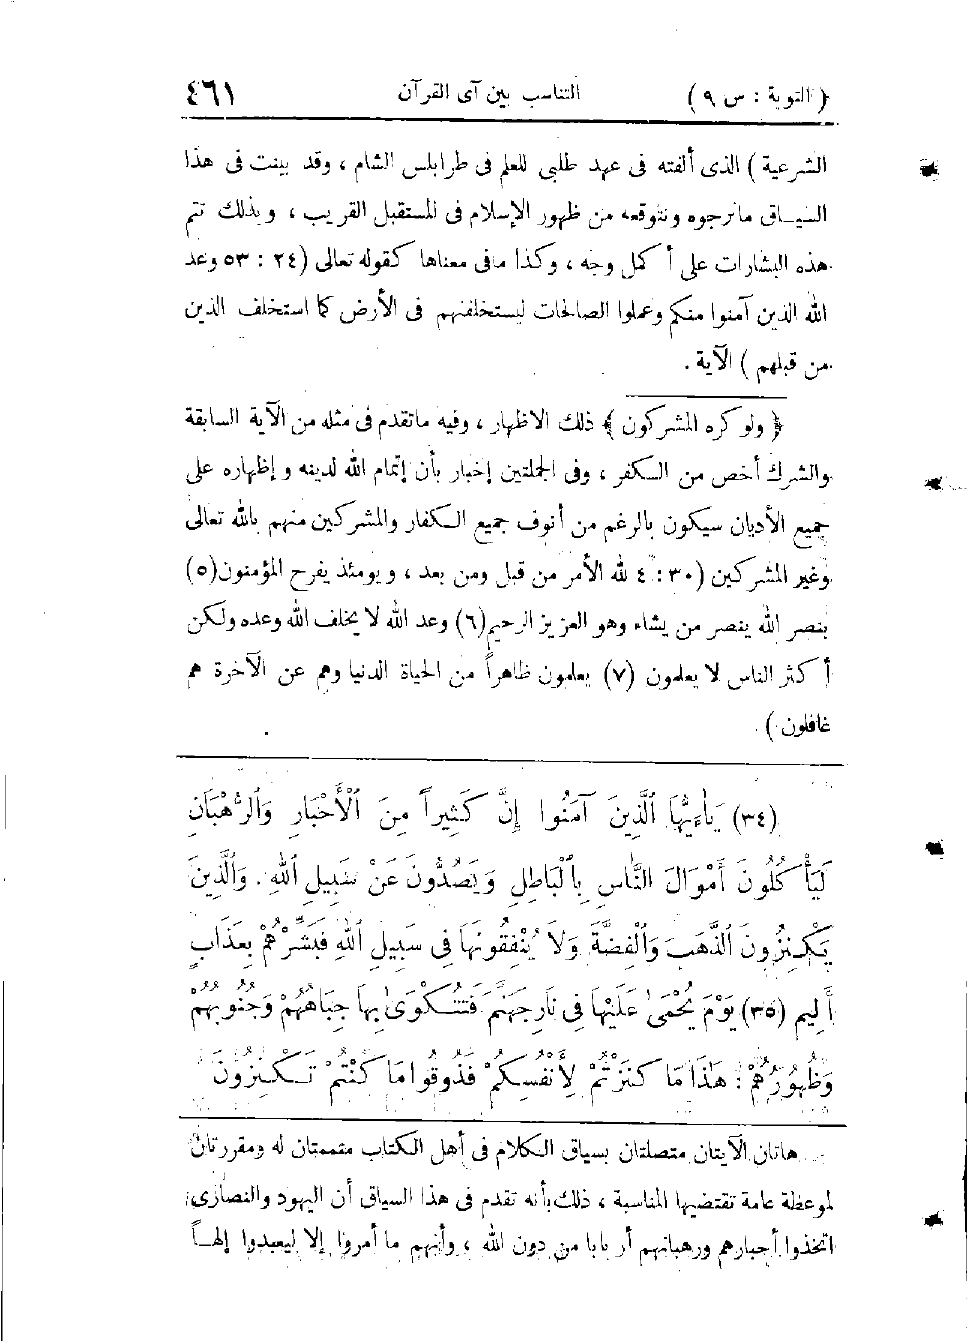 ( التوبة : س ٩ ) التناسب بين آى القرآن ٤٦١
الشرعية ) الذى ألفته فى عهد طلبى للعلم فى طرابلس الشام ، وقد بينت فى هذا
السياق ما نرجوه ونتوقعه من ظهور الإسلام فى المستقبل القريب ، وبذلك تتم
هذه البشارات على أكمل وجه ، وكذا ما فى معناها كقوله تعالى (٢٤ : ٥٣ وعد
الله الذين آمنوا منكم وعملوا الصالحات ليستخلفنهم فى الأرض كما استخلف الذين
من قبلهم ) الآية .
﴿ ولو كره المشركون ﴾ ذلك الاظهار ، وفيه ما تقدم فى مثله من الآية السابقة
والشرك أخص من الكفر ، وفى الجملتين إخبار بأن إتمام الله لدينه وإظهاره على
جميع الأديان سيكون بالرغم من أنوف جميع الكفار والمشركين منهم بالله تعالى
وغير المشركين (٣٠ : ٤ لله الأمر من قبل ومن بعد ، ويومئذ يفرح المؤمنون (٥)
بنصر الله ينصر من يشاء وهو العزيز الرحيم (٦) وعد الله لا يخلف الله وعده ولكن
أكثر الناس لا يعلمون (٧) يعلمون ظاهراً من الحياة الدنيا وهم عن الآخرة هم
غافلون ) .
(٣٤) يَاأَيُّهَا ٱلَّذِينَ آمَنُوا إِنَّ كَثِيراً مِنَ ٱلْأَحْبَارِ وَٱلرُّهْبَانِ
لَيَأْكُلُونَ أَمْوَالَ النَّاسِ بِٱلْبَاطِلِ وَيَصُدُّونَ عَنْ سَبِيلِ ٱللهِ . وَٱلَّذِينَ
يَكْنِزُونَ ٱلذَّهَبَ وَٱلْفِضَّةَ وَلاَ يُنْفِقُونَهَا فِى سَبِيلِ ٱللهِ فَبَشِّرْهُمْ بِعَذَابٍ
أَلِيمٍ (٣٥) يَوْمَ يُحْمَىٰ عَلَيْهَا فِى نَارِ جَهَنَّمَ فَتُكْوَىٰ بِهَا جِبَاهُهُمْ وَجُنُوبُهُمْ
وَظُهُورُهُمْ : هَٰذَا مَا كَنَزْتُمْ لِأَنْفُسِكُمْ فَذُوقُوا مَا كُنْتُمْ تَكْنِزُونَ
هاتان الآيتان متصلتان بسياق الكلام فى أهل الكتاب متممتان له ومقررتان
لموعظة عامة تقتضيها المناسبة ، ذلك بأنه تقدم فى هذا السياق أن اليهود والنصارى
اتخذوا أحبارهم ورهبانهم أربابا من دون الله ، وأنهم ما أمروا إلا ليعبدوا إلهاً